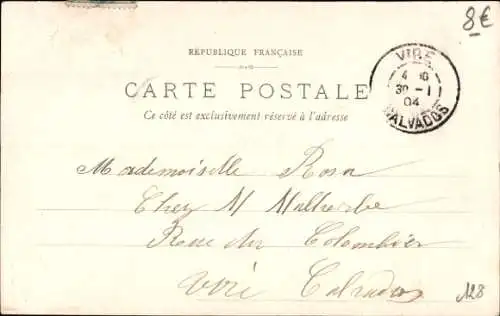 8€
RÉPUBLIQUE FRANÇAISE
CARTE POSTALE
Ce côté est exclusivement réservé à l'adresse
VIRE
30 - 1
04
CALVADOS
Mademoiselle Rosa
Chez M Malherbe
Rue du Colombier
Vire Calvados
128